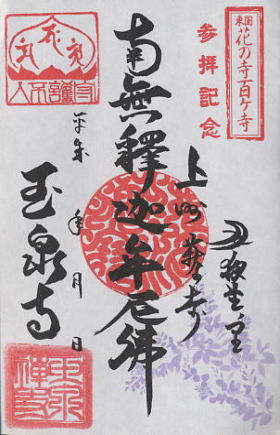 東国
花の寺百ヶ寺
参拝記念
上州萩の寺
南無釋迦牟尼佛
平成 年 月 日
玉泉寺
玉泉禅寺